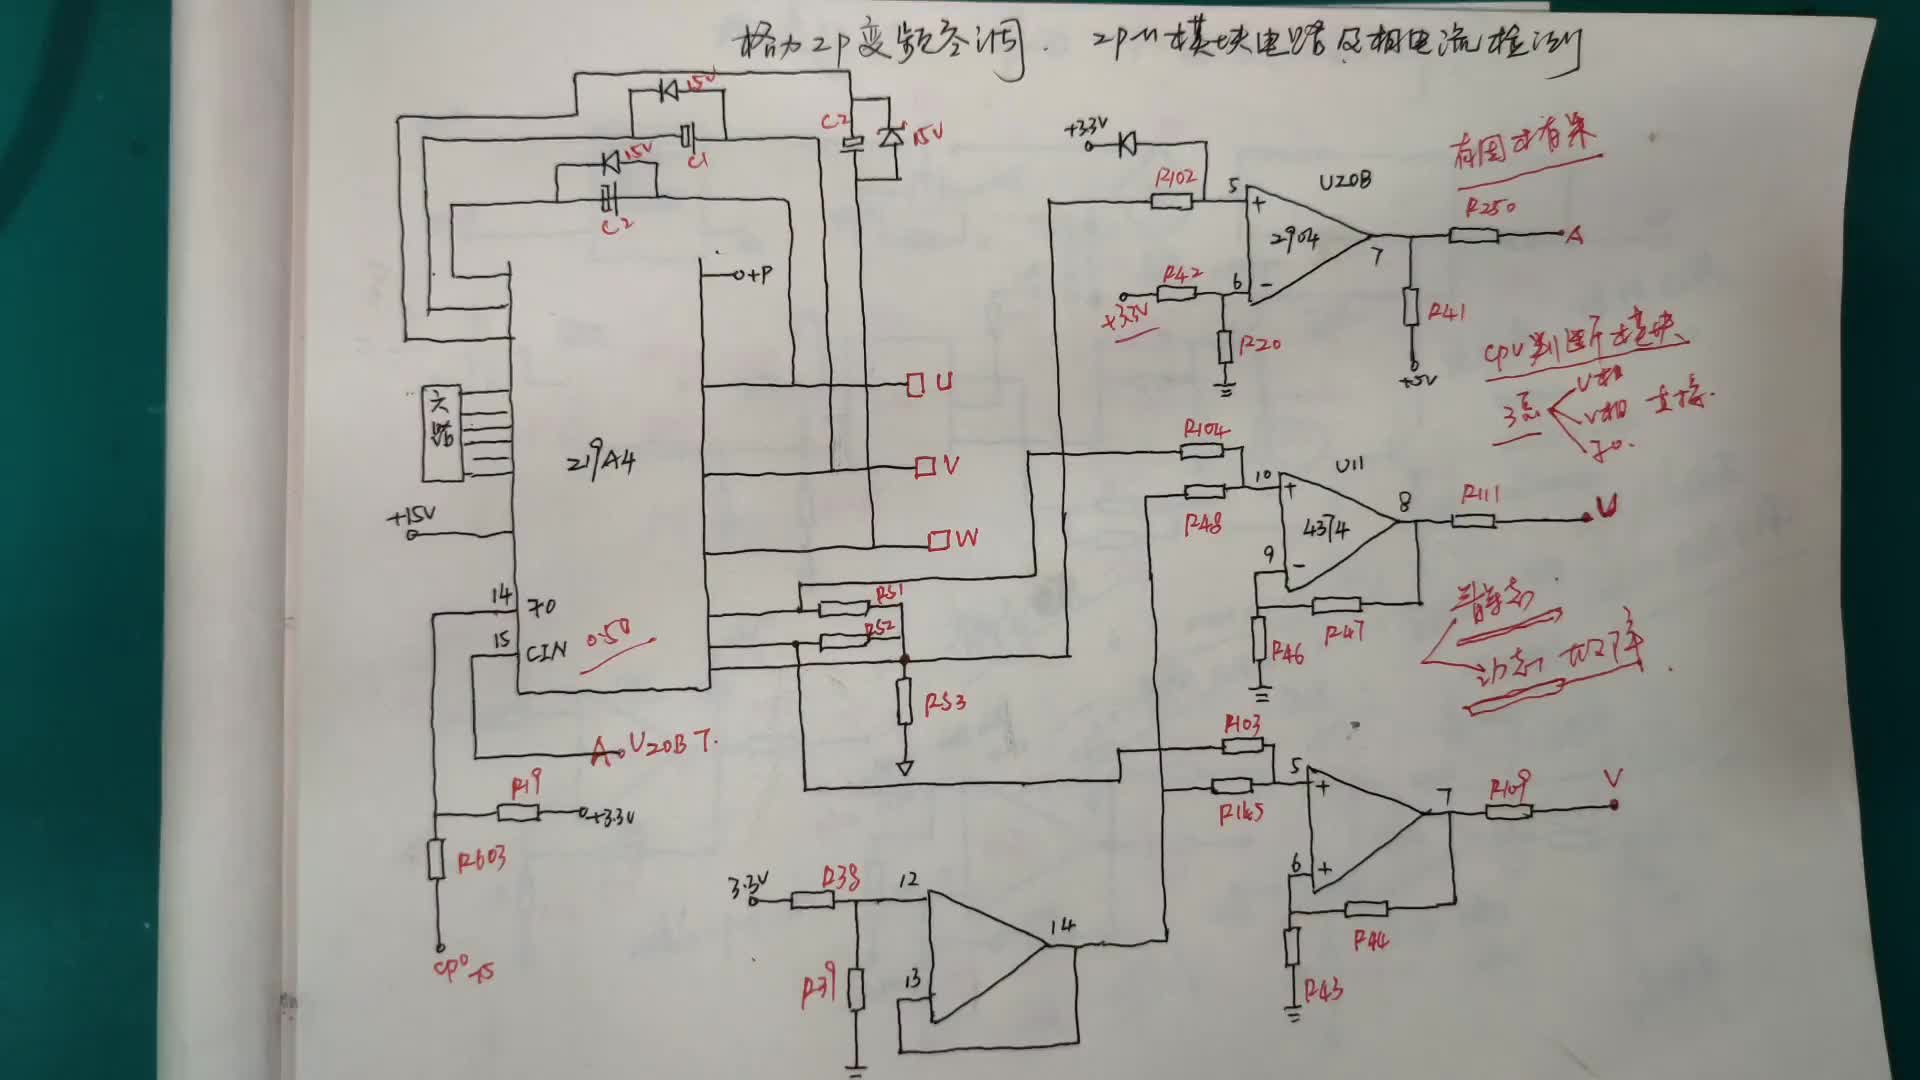 格力2P变频空调. 2PM模块电路及相电流检测
15V
C1
15V
C2
C2
15V
+3.3V
R102
5
U20B
+
2904
7
R250
A
有因才有果
R42
+3.3V
6
-
R20
R41
+5V
CPU判断模块
3点
U相
V相
直接.
o+P
六路
219A4
U
V
W
+15V
14
FO
15
CIN
0.5V
RS1
RS2
RS3
A
U20B 7.
R19
+3.3V
R603
R104
R48
10
U11
+
4374
8
9
-
R111
U
R47
R46
静态
动态
R103
R145
5
+
7
6
+
R109
V
R44
R43
3.3V
R38
12
14
13
R39